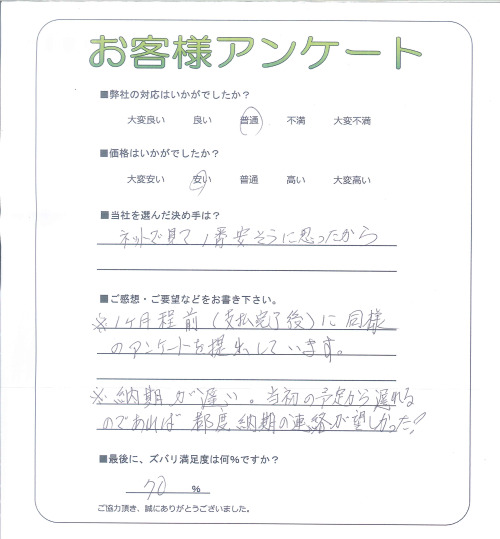 お客様アンケート
■弊社の対応はいかがでしたか？
大変良い 良い 普通 不満 大変不満
■価格はいかがでしたか？
大変安い 安い 普通 高い 大変高い
■当社を選んだ決め手は？
ネットで見て1番安そうに思ったから
■ご感想・ご要望などをお書き下さい。
※1ヶ月程前(支払完了後)に同様
のアンケートを提出しています。
※納期が遅い。当初の予定から遅れる
のであれば都度納期の連絡が望しかった!
■最後に、ズバリ満足度は何％ですか？
70 %
ご協力頂き、誠にありがとうございました。